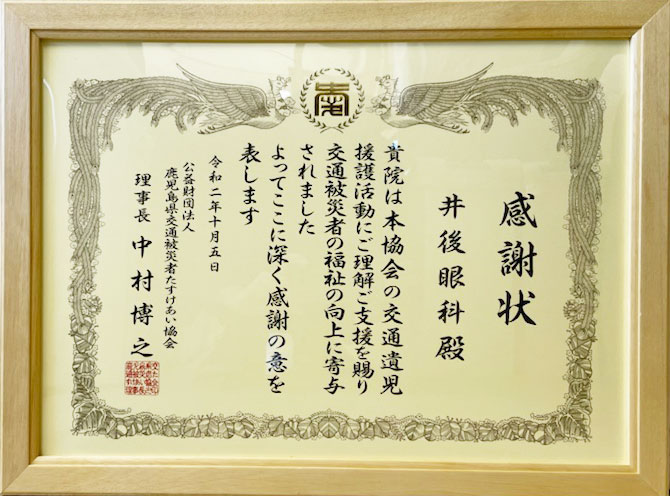 感謝状
井後眼科殿
貴院は本協会の交通遺児
援護活動にご理解ご支援を賜り
交通被災者の福祉の向上に寄与
されました
よってここに深く感謝の意を
表します
令和二年十月五日
公益財団法人
鹿児島県交通被災者たすけあい協会
理事長 中村博之